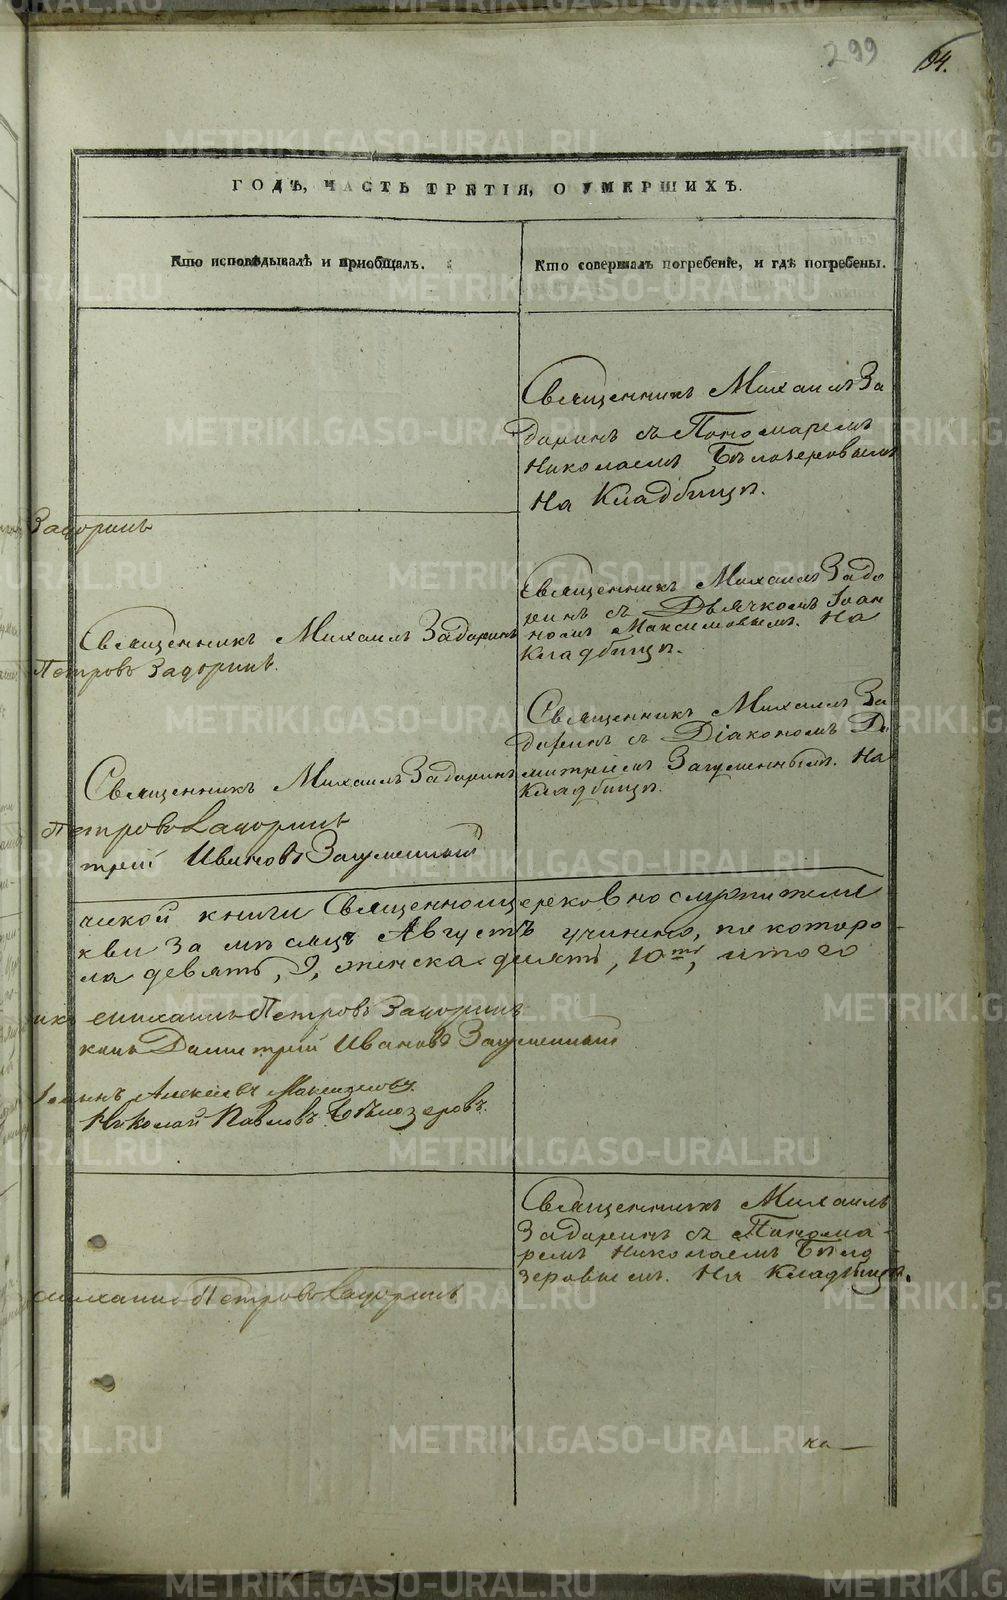 299
94.
ГОДЪ, ЧАСТЬ ТРЕТІЯ, О УМЕРШИХЪ.
Кто исповѣдывалъ и пріобщалъ.
Кто совершалъ погребеніе, и гдѣ погребены.
Священникъ Михаилъ За
доринъ съ Пономаремъ
Николаемъ Бѣлозеровымъ
На Кладбищѣ.
Задоринъ
Священникъ Михаилъ Задоринъ
Петровъ Задоринъ.
Священникъ Михаилъ Задо
ринъ съ Дьячкомъ Іоан
номъ Максимовымъ. На
Кладбищѣ.
Священникъ Михаилъ Задоринъ
Священникъ Михаилъ За
доринъ съ Діакономъ Ди
митріемъ Загуменнымъ. На
Кладбищѣ.
Петровъ Задоринъ
трій Ивановъ Загуменный
ческой книги Священноцерковнослужителями
кви за мѣсяцъ Августъ учинено, по которо
ла девять, 9, женска десять, 10ть, итого
икъ Михаилъ Петровъ Задоринъ
конъ Димитрій Ивановъ Загуменный
Іоаннъ Алексѣевъ Максимовъ
Николай Павловъ Бѣлозеровъ.
Священникъ Михаилъ
Задоринъ съ Понома-
ремъ Николаемъ Бѣло
зеровымъ. На Кладбищѣ.
Михаилъ Петровъ Задоринъ
ка
METRIKI.GASO-URAL.RU